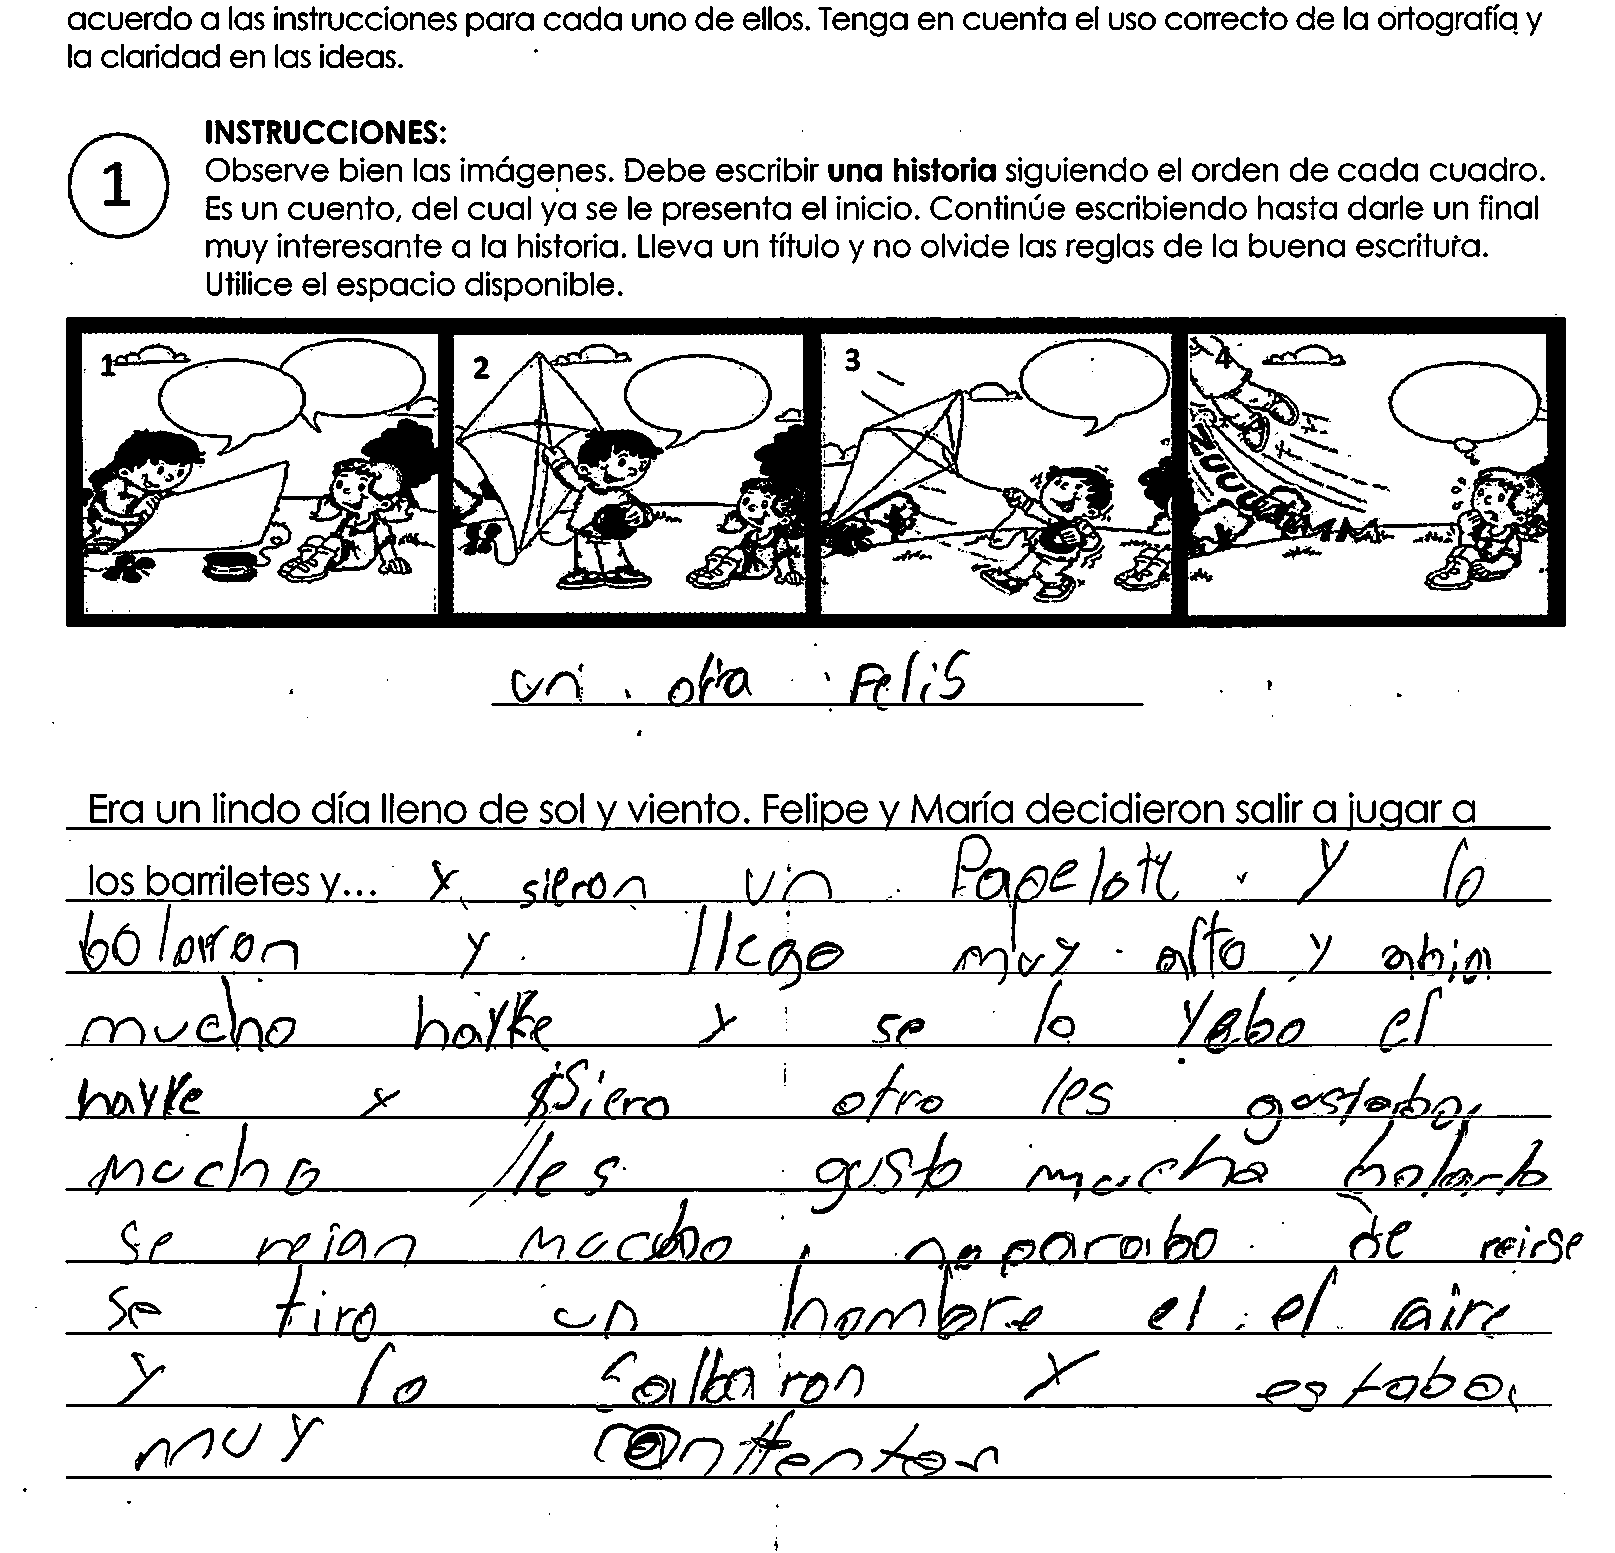 acuerdo a las instrucciones para cada uno de ellos. Tenga en cuenta el uso correcto de la ortografía y
la claridad en las ideas.
INSTRUCCIONES:
1
Observe bien las imágenes. Debe escribir una historia siguiendo el orden de cada cuadro.
Es un cuento, del cual ya se le presenta el inicio. Continúe escribiendo hasta darle un final
muy interesante a la historia. Lleva un título y no olvide las reglas de la buena escritura.
Utilice el espacio disponible.
1 2 3 4
ZUUUUMMM
un otra Felis
Era un lindo día lleno de sol y viento. Felipe y María decidieron salir a jugar a
los barriletes y... y sieron un Papelott y lo
bolaron y llego muy alto y abia
mucho hayke y se lo yebo el
hayke y Siero otro les gostaba
mucho lles gusto mucho bolarlo
se reian mucho no parabo de reirse
se tiro un hombre el el aire
y lo salbairon y estaba
muy conttenton